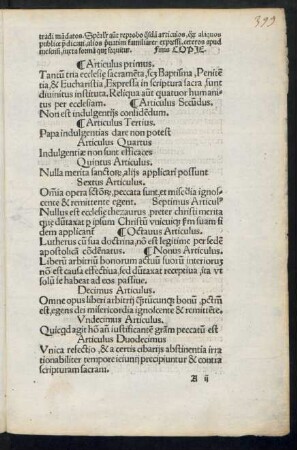 399
tradi mādatos. Spēalr aūt reprobo qſdā articulos, qͦs aliquos
publice p̄dicant, alios priuatim familiariter expreſſi, ceteros apud
Finis COPIE.
¶ Articulus primus.
Tantū tria eccleſię ſacramēta, ſcz Baptiſma, Penitē
tia, & Euchariſtia, Expreſſa in ſcriptura ſacra ſunt
diuinitus inſtituta. Reliqua aūt quatuor humani
tus per eccleſiam. ¶ Articulus Secūdus.
Non eſt indulgentijs confidēdum.
¶ Articulus Tertius.
Papa indulgentias dare non poteſt
Articulus Quartus
Indulgentiæ non ſunt efficaces
Quintus Articulus.
Nulla merita ſanctorꝝ, alijs applicari poſſunt
Sextus Articulus.
Oīa opera ſctorꝝ, peccata ſunt, et miſcd̄ia ignoſcē
te & remittente egent. Septimus Articulꝰ
Nullus eſt eccleſię thezaurus, preter chriſti merita
que dūtaxat p̄ ipſum Chriſtū vnicuiqꝫ ẜm ſuam fi
dem applicant̄ ¶ Octauus Articulus.
Lutherus cū ſua doctrina, nō eſt legitime per ſedē
apoſtolicā cōdēnatus. ¶ Nonus Articulus.
Liberū arbitriū bonorum actuū ſuorū interiorum
nō eſt cauſa effectiua, ſed dūtaxat receptiua, ita vt
ſolū ſe habeat ad eos paſſiue.
Decimus Articulus.
Omne opus liberi arbitrij q̄ſtūcunqꝫ bonū, pctm̄
eſt, egens dei miſericordia ignoſcente & remittēte.
Vndecimus Articulus.
Quicqd̄ agit hō añ iuſtificantē grām peccatū eſt
Articulus Duodecimus
Vnica refectio, & a certis cibarijs abſtinentia irra
tionabiliter tempore ieiunij precipiuntur & contra
ſcripturam ſacram.
A ij